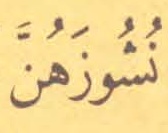 نُشُوزَهُنَّ